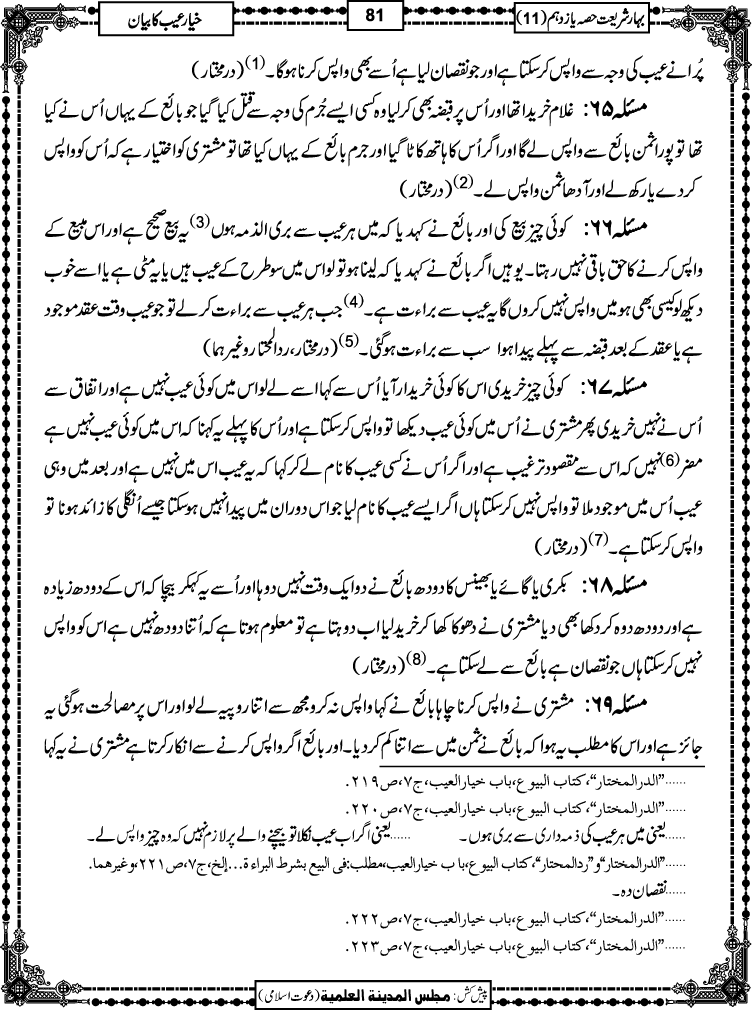 بہارِشریعت حصہ یازدہم (11)
81
خیارِ عیب کا بیان
پُرانے عیب کی وجہ سے واپس کرسکتا ہے اور جو نقصان لیا ہے اُسے بھی واپس کرنا ہوگا۔(1) (درمختار)
مسئلہ ۶۵: غلام خریدا تھا اور اُس پر قبضہ بھی کرلیا وہ کسی ایسے جُرم کی وجہ سے قتل کیا گیا جو بائع کے یہاں اُس نے کیا
تھا تو پورا ثمن بائع سے واپس لے گا اور اگر اُس کا ہاتھ کاٹا گیا اور جرم بائع کے یہاں کیا تھا تو مشتری کو اختیار ہے کہ اُس کو واپس
کردے یا رکھ لے اور آدھا ثمن واپس لے۔(2) (درمختار)
مسئلہ ۶۶: کوئی چیز بیع کی اور بائع نے کہدیا کہ میں ہر عیب سے بری الذمہ ہوں(3) یہ بیع صحیح ہے اور اس مبیع کے
واپس کرنے کا حق باقی نہیں رہتا۔ یوہیں اگر بائع نے کہدیا کہ لینا ہو تو لو اس میں سو طرح کے عیب ہیں یا یہ مٹی ہے یا اسے خوب
دیکھ لو کیسی بھی ہو میں واپس نہیں کروں گا یہ عیب سے براءت ہے۔(4) جب ہر عیب سے براءت کرلے تو جو عیب وقت عقد موجود
ہے یا عقد کے بعد قبضہ سے پہلے پیدا ہوا سب سے براءت ہوگئی۔(5) (درمختار، ردالمحتار وغیرہما)
مسئلہ ۶۷: کوئی چیز خریدی اس کا کوئی خریدار آیا اُس سے کہا اسے لے لو اس میں کوئی عیب نہیں ہے اور اتفاق سے
اُس نے نہیں خریدی پھر مشتری نے اُس میں کوئی عیب دیکھا تو واپس کرسکتا ہے اور اُس کا پہلے یہ کہنا کہ اس میں کوئی عیب نہیں ہے
مضر(6) نہیں کہ اس سے مقصود ترغیب ہے اور اگر اُس نے کسی عیب کا نام لے کر کہا کہ یہ عیب اس میں نہیں ہے اور بعد میں وہی
عیب اُس میں موجود ملا تو واپس نہیں کرسکتا ہاں اگر ایسے عیب کا نام لیا جو اس دوران میں پیدا نہیں ہوسکتا جیسے اُنگلی کا زائد ہونا تو
واپس کرسکتا ہے۔(7) (درمختار)
مسئلہ ۶۸: بکری یا گائے یا بھینس کا دودھ بائع نے دو ایک وقت نہیں دوہا اور اُسے یہ کہکر بیچا کہ اس کے دودھ زیادہ
ہے اور دودھ دوہ کر دکھا بھی دیا مشتری نے دھوکا کھا کر خرید لیا اب دوہتا ہے تو معلوم ہوتا ہے کہ اُتنا دودھ نہیں ہے اس کو واپس
نہیں کرسکتا ہاں جو نقصان ہے بائع سے لے سکتا ہے۔(8) (درمختار)
مسئلہ ۶۹: مشتری نے واپس کرنا چاہا بائع نے کہا واپس نہ کرو مجھ سے اتنا روپیہ لے لو اور اس پر مصالحت ہوگئی یہ
جائز ہے اور اس کا مطلب یہ ہوا کہ بائع نے ثمن میں سے اتنا کم کردیا۔ اور بائع اگر واپس کرنے سے انکار کرتا ہے مشتری نے یہ کہا
......"الدرالمختار"، کتاب البیوع، باب خیارالعیب، ج۷، ص۲۱۹.
......"الدرالمختار"، کتاب البیوع، باب خیارالعیب، ج۷، ص۲۲۰.
......یعنی میں ہر عیب کی ذمہ داری سے بری ہوں۔ ......یعنی اگر اب عیب نکلا تو بیچنے والے پر لازم نہیں کہ وہ چیز واپس لے۔
......"الدرالمختار" و "ردالمحتار"، کتاب البیوع، باب خیارالعیب، مطلب: فی البیع بشرط البراءة...إلخ، ج۷، ص۲۲۱، وغیرھما.
......نقصان دہ۔
......"الدرالمختار"، کتاب البیوع، باب خیارالعیب، ج۷، ص۲۲۲.
......"الدرالمختار"، کتاب البیوع، باب خیارالعیب، ج۷، ص۲۲۳.
پیش کش: مجلس المدینة العلمیة (دعوتِ اسلامی)